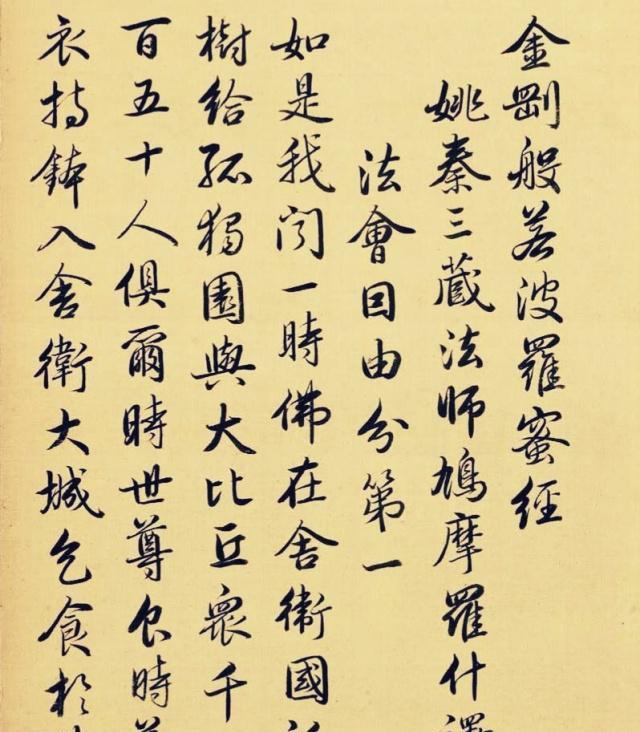 金剛般若波羅蜜經
姚秦三藏法師鳩摩羅什譯
法會因由分第一
如是我闻一時佛在舍衛國
樹給孤獨園與大比丘眾千
百五十人俱爾時世尊食時
衣持鉢入舍衛大城乞食於